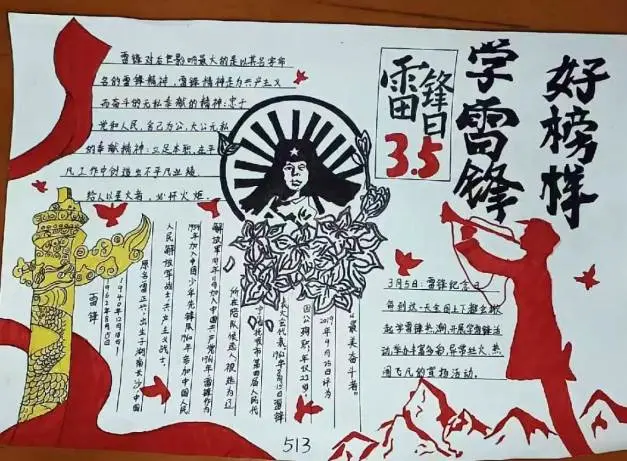 雷锋日
3.5
学雷锋
好榜样
雷锋对后世影响最大的是以其名字命
名的雷锋精神，雷锋精神是为共产主义
而奋斗的无私奉献的精神；忠于
党和人民，舍己为公，大公无私
的奉献精神；立足本职，在平
凡工作中创造出不平凡业绩
给人以星火者，必怀火炬。
3月5日：雷锋纪念日
每到这一天全国上下都会掀
起学雷锋热潮，开展学雷锋活
动，举办丰富多彩，异常壮大，热
闹飞凡的宣扬活动。
雷锋
1940年12月18日
1962年8月15日
原名雷正兴，出生于湖南长沙，中国
人民解放军战士，共产主义战士。
1954年加入中国少年先锋队，1960年参加中国人民
解放军，同年11月加入中国共产党。1961年雷锋作为
所在部队候选人被选为辽
宁省抚顺市第四届人民代
表大会代表。1962年8月15日雷锋
因公殉职，年仅22岁。
2019年9月25日评为
“最美奋斗者”
513